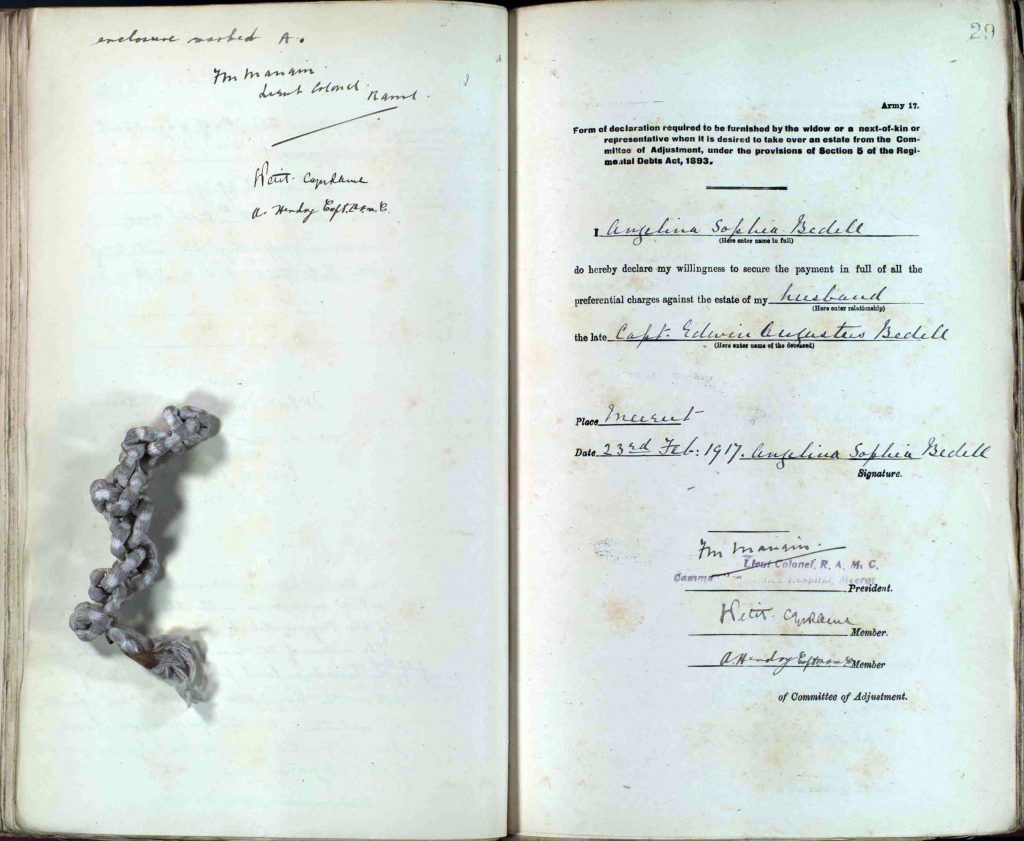 enclosure marked A.
Fm Mangin
Lieut Colonel Ramc.
Capt Ramc
A. Hendry Capt. R.A.M.C.
29
Army 17.
Form of declaration required to be furnished by the widow or a next-of-kin or
representative when it is desired to take over an estate from the Com-
mittee of Adjustment, under the provisions of Section 5 of the Regi-
mental Debts Act, 1893.
I Angelina Sophia Bedell
(Here enter name in full)
do hereby declare my willingness to secure the payment in full of all the
preferential charges against the estate of my husband
(Here enter relationship)
the late Capt. Edwin Augustus Bedell
(Here enter name of the deceased)
Place Meerut
Date 23rd Feb: 1917. Angelina Sophia Bedell
Signature.
Fm Mangin
Lieut Colonel, R. A. M. C.
Hospital, Meerut
President.
Capt Ramc
Member.
A. Hendry Capt Member
of Committee of Adjustment.